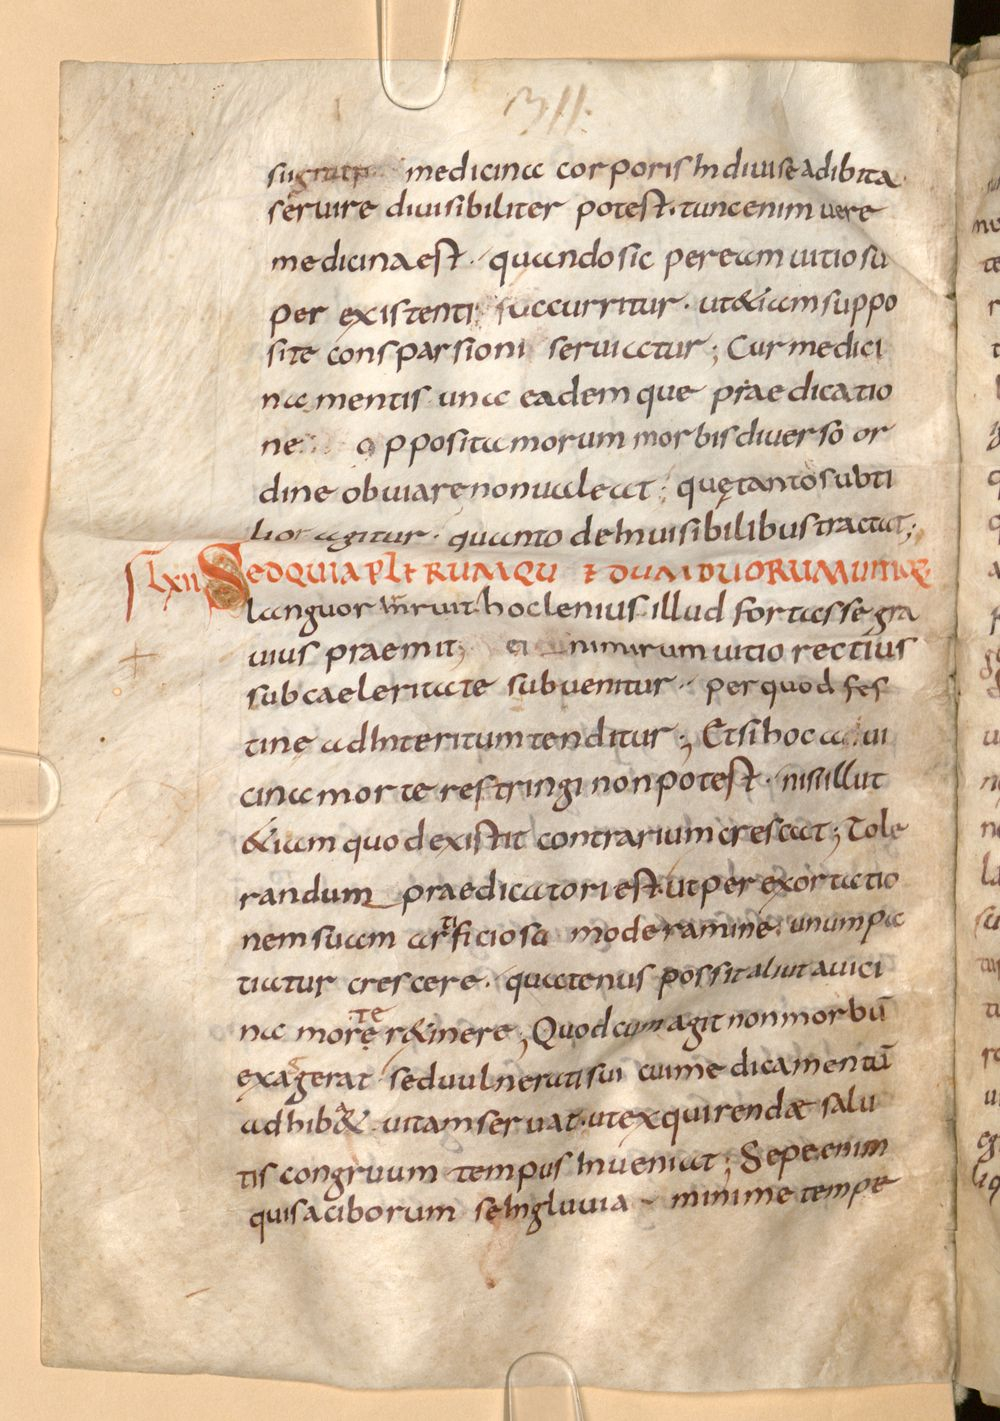 medicina corporis Indiuise adibita
seruire diuisibiliter potest. tunc enim uere
medicina est. quando sic per eam uitio su
per existenti succurritur. ut &iam suppo
site consparsioni seruiatur; Cur medici
na mentis una eademque praedicatio
ne oppositamorum morbis diuerso or
dine obuiare non ualeat; quę tanto subti
lior agitur. quanto de Inuisibilibus tractat;
lxii SED QUIA PLERUMQU DUM DUORUM UITIOR
languor inruit hoc lenius. illud fortasse gra
uius praemit; ei nimirum uitio rectius
sub caeleritate subuenitur. per quod fes
tine ad Interitum tenditur; Et si hoc a ui
cina morte restringi non potest. nisi illut
&iam quod existit contrarium crescat; Tole
randum praedicatori est. ut per exortatio
nem suam artificiosa moderamine. unum pa
tiatur crescere. quatenus possit aliut a uici
na morte r&inere; Quod cum agit non morbū
exagerat sed uulnerati sui cui medicamentū
adhib& uitam seruat. ut exquirendae salu
tis congruum tempus Inueniat; Sepe enim
quis a ciborum se Ingluuia minime tempe